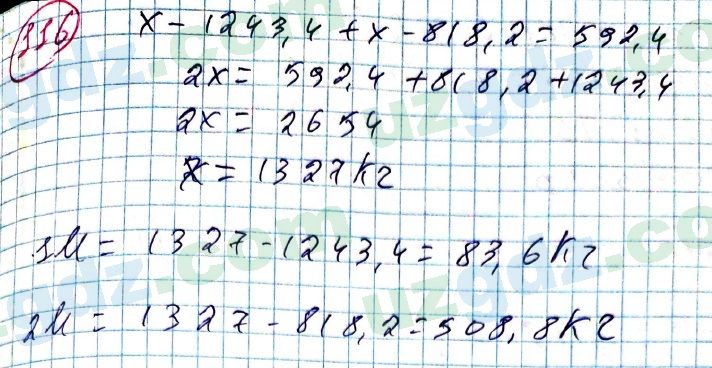 116
x - 1243,4 + x - 818,2 = 592,4
2x = 592,4 + 818,2 + 1243,4
2x = 2654
x = 1327 кг
1M = 1327 - 1243,4 = 83,6 кг
2M = 1327 - 818,2 = 508,8 кг
uzgdz.com